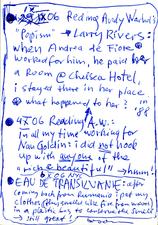 1X06 Reding Andy Warhol's
"Popism" → Larry Rivers:
when Andrea de Fiore
worked for him, he paid her
a Room @ Chelsea Hotel,
i stayed there in her place
@ what happened to her? in '88
4X06 Reading A.W.:
in all my time working for
Nan Goldin i did not hook
up with anyone of the
"rich & beautiful" → hmm!
6X06 NYC
EAU DE TRANSILVANIE: after
coming back from Rumania i put my
clothes (they smelled like fire from wood)
in a plastic bag to conserve the smell
→ still great!